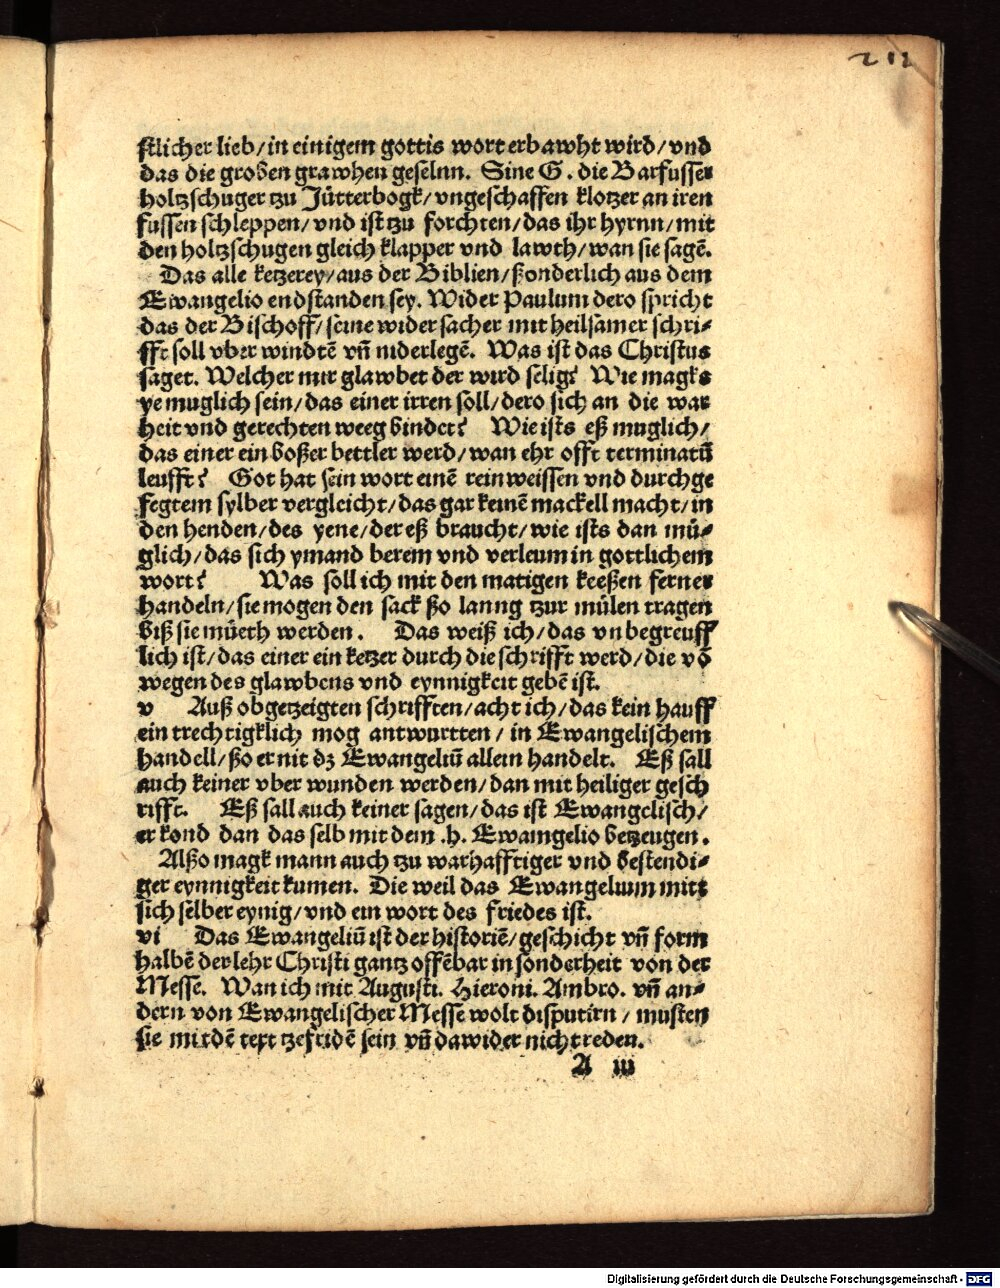 212
ſtlicher lieb/in einigem gottis wort erbawht wird/vnd
das die groſsen grawhen geſelnn. Sine G. die Barfuſſer
holtzſchuger tzu Jütterbogk/vngeſchaffen klotzer an iren
fuſſen ſchleppen/vnd iſt tzu forchten/das ihr hyrnn/mit
den holtzſchugen gleich klapper vnd lawth/wan ſie ſagē.
Das alle ketzerey/aus der Biblien/ßonderlich aus dem
Ewangelio endſtanden ſey. Wider Paulum dero ſpricht
das der Biſchoff/ſeine wider ſacher mit heilſamer ſchri⸗
fft ſoll vber windtē vñ niderlegē. Was iſt das Chriſtus
ſaget. Welcher mir glawbet der wird ſelig? Wie magks
ye muglich ſein/das einer irren ſoll/dero ſich an die war
heit vnd gerechten weeg bindet? Wie iſts eß muglich/
das einer ein boßer bettler werd/wan ehr offt terminatū
leufft? Got hat ſein wort einē rein weiſſen vnd durchge
fegtem ſylber vergleicht/das gar keinē mackell macht/in
den henden/des yene/der eß braucht/wie iſts dan mü⸗
glich/das ſich ymand berem vnd verleum in gottlichem
wort? Was ſoll ich mit den matigen keeßen ferner
handeln/ſie mogen den ſack ßo lanng tzur mülen tragen
biß ſie müeth werden. Das weiß ich/das vnbegreuff
lich iſt/das einer ein ketzer durch die ſchrifft werd/die vō
wegen des glawbens vnd eynnigkeit gebē iſt.
v Auß obgetzeigten ſchrifften/acht ich/das kein hauff
ein trechtigklich mog antwurtten/in Ewangeliſchem
handell/ßo er nit dz Ewangeliū allein handelt. Eß ſall
auch keiner vber wunden werden/dan mit heiliger geſch
rifft. Eß ſall auch keiner ſagen/das iſt Ewangeliſch/
er kond dan das ſelb mit dem .h. Ewamgelio betzeugen.
Alßo magk mann auch tzu warhafftiger vnd beſtendi⸗
ger eynnigkeit kumen. Die weil das Ewangelium mitt
ſich ſelber eynig/vnd ein wort des friedes iſt.
vi Das Ewangeliū iſt der hiſtoriē/geſchicht vñ form
halbē der lehr Chriſti gantz offēbar in ſonderheit von der
Meſſe. Wan ich mit Auguſti. Hieroni. Ambro. vñ an⸗
dern von Ewangeliſcher Meſſe wolt diſputirn/muſten
ſie mit dē text tzefridē ſein vñ dawider nicht reden.
A iii
Digitalisierung gefördert durch die Deutsche Forschungsgemeinschaft - DFG